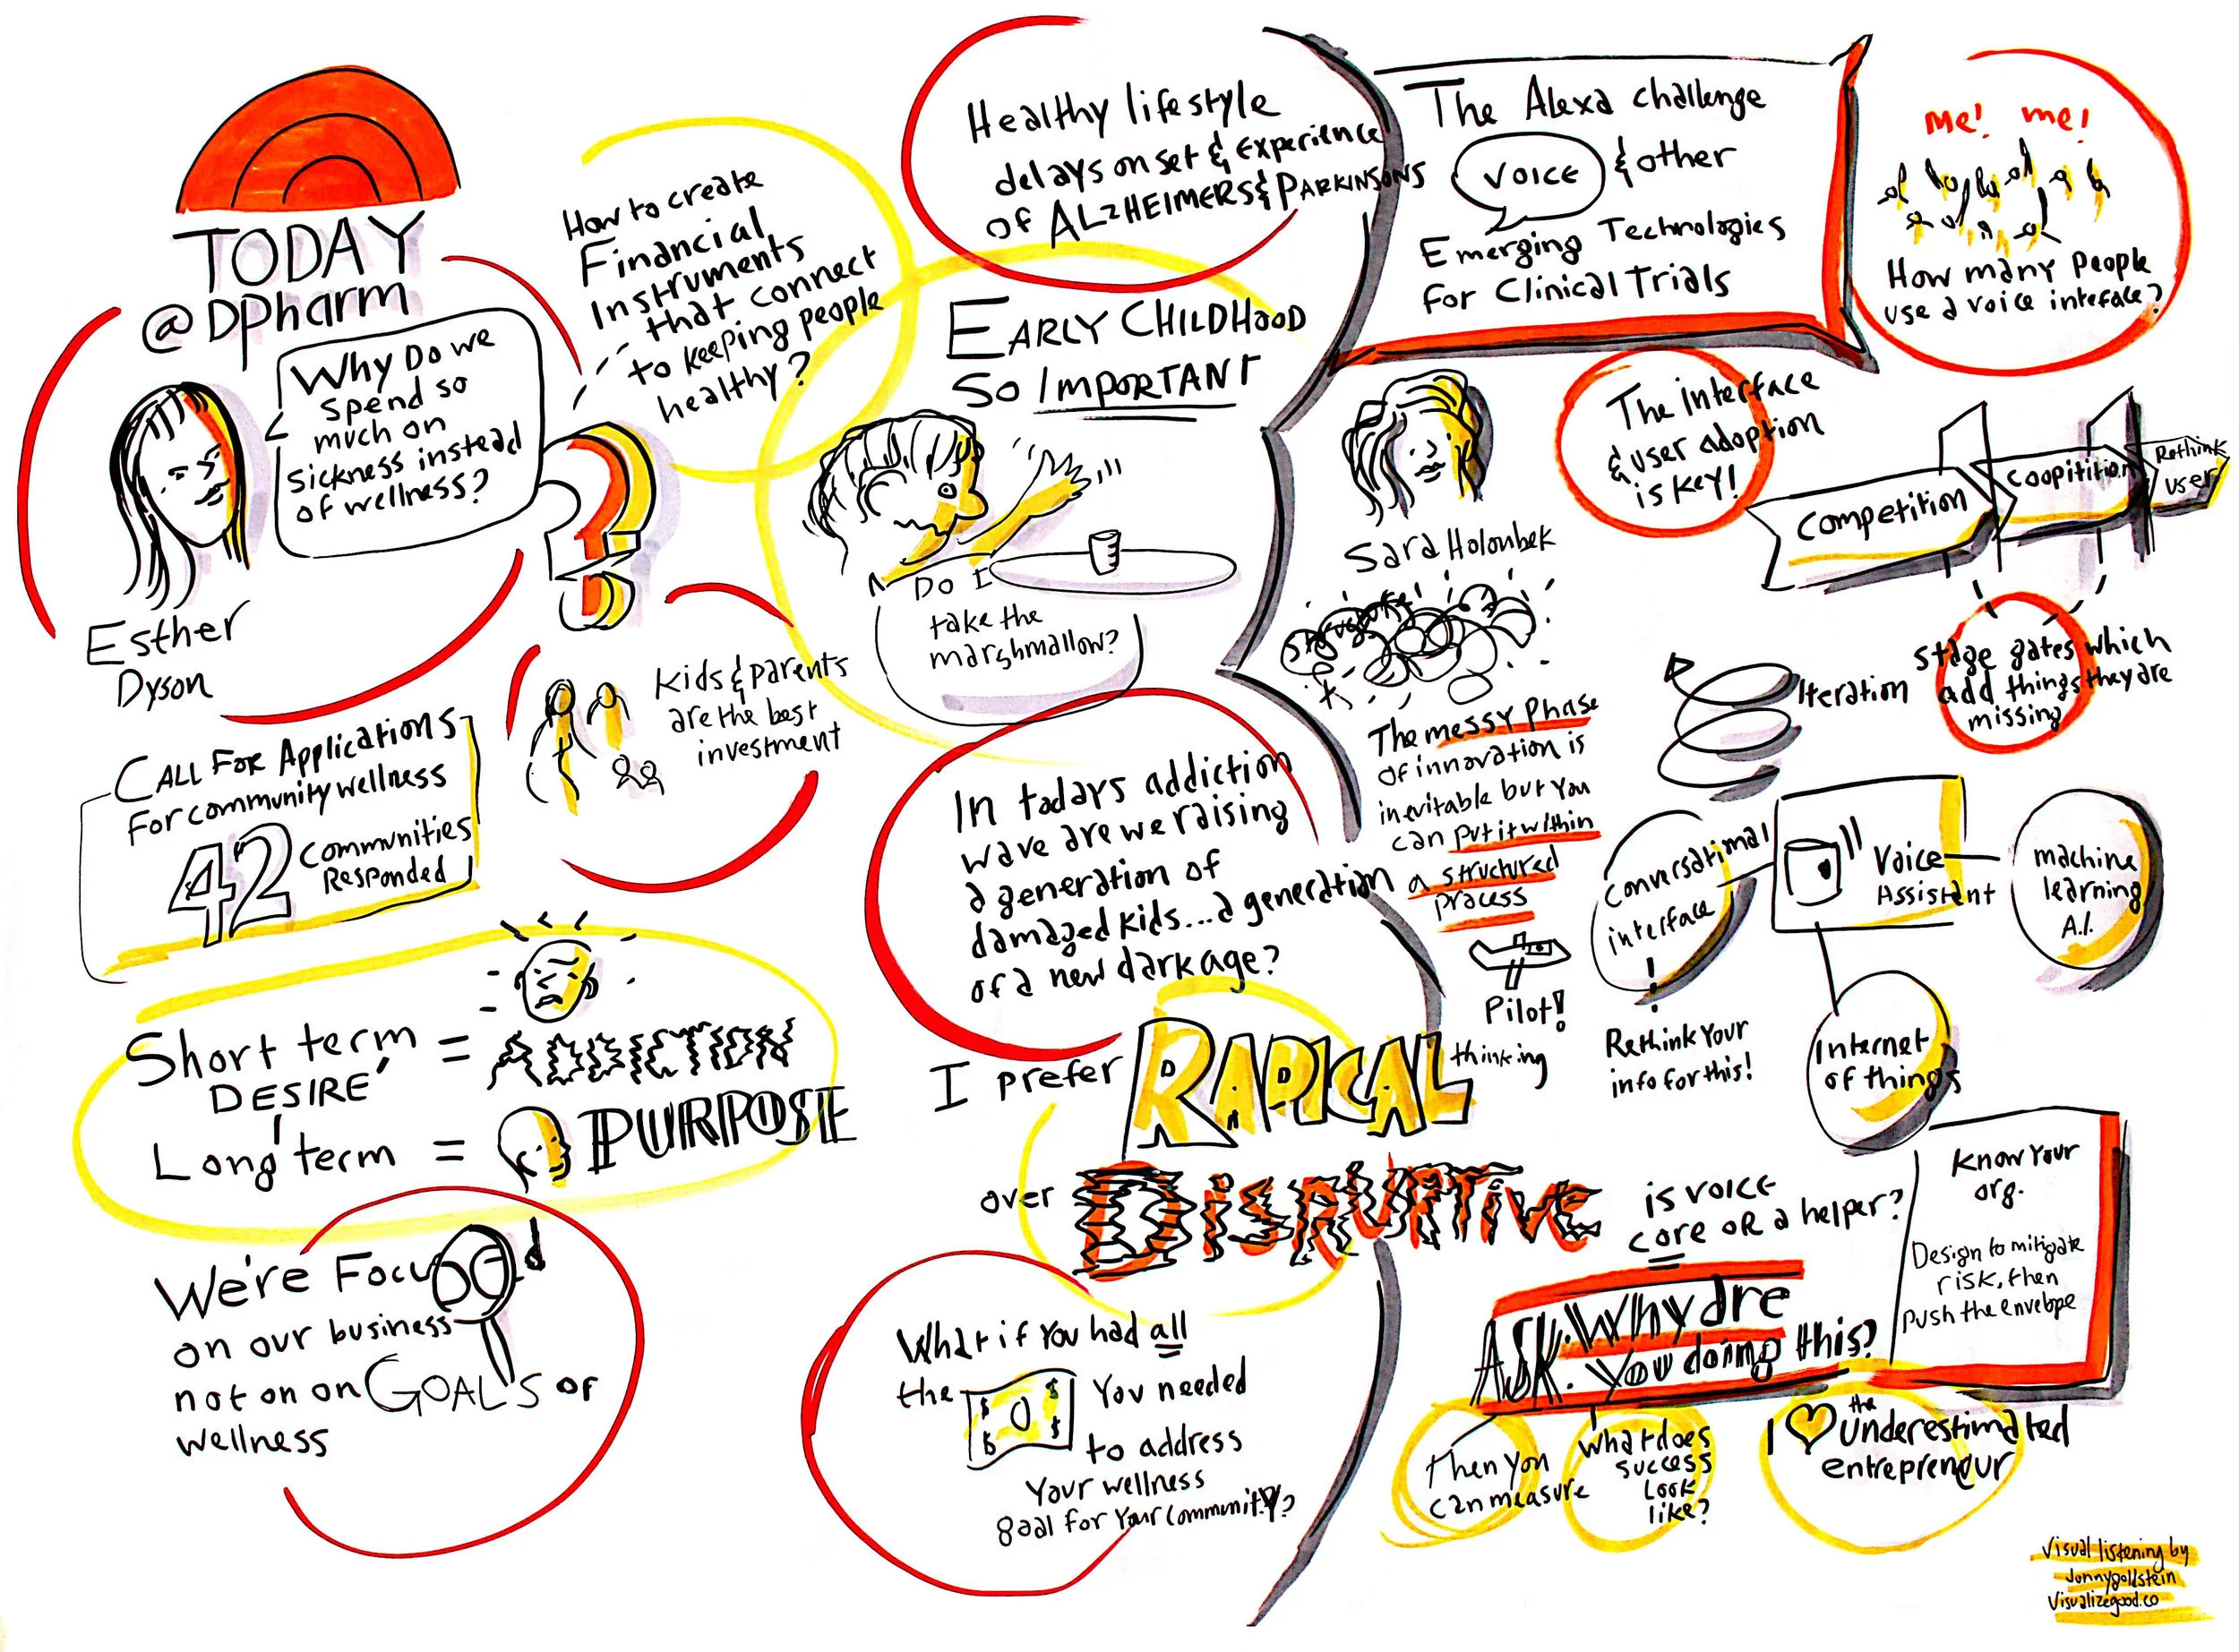 TODAY
@DPharm
Why Do we
spend so
much on
sickness instead
of wellness?
Esther
Dyson
How to create
Financial
Instruments
that connect
to keeping people
healthy?
CALL FOR Applications
For community wellness
42
Communities
Responded
Kids & parents
are the best
investment
Short term = ADDICTION
DESIRE
Long term = PURPOSE
We're Focused
on our business
not on on GOALS of
wellness
Healthy lifestyle
delays onset & experience
of ALZHEIMERS & PARKINSONS
EARLY CHILDHOOD
SO IMPORTANT
DO I
take the
marshmallow?
In todays addiction
wave are we raising
a generation of
damaged kids...a generation
of a new dark age?
I prefer RADICAL
over DISRUPTIVE
What if you had all
the
$ 0 $
$ $
You needed
to address
Your wellness
goal for your community?
The Alexa challenge
VOICE & other
Emerging Technologies
for Clinical Trials
me! me!
How many people
use a voice inteface?
Sara Holoubek
The interface
& user adoption
is key!
Competition
Coopitition
Rethink
user
Stage gates which
add things they are
missing
Iteration
The messy phase
of innovation is
inevitable but you
can put it within
a structured
process
Pilot!
thinking
Conversational
interface
Rethink your
info for this!
Voice
Assistant
machine
learning
A.I.
Internet
of things
is voice
core or a helper?
Know your
org.
Design to mitigate
risk, then
push the envelope
ASK: Why are
you doing this?
Then you
can measure
what does
success
look
like?
I ♥ the underestimated
entrepreneur
Visual listening by
Jonnygoldstein
Visualizegood.co